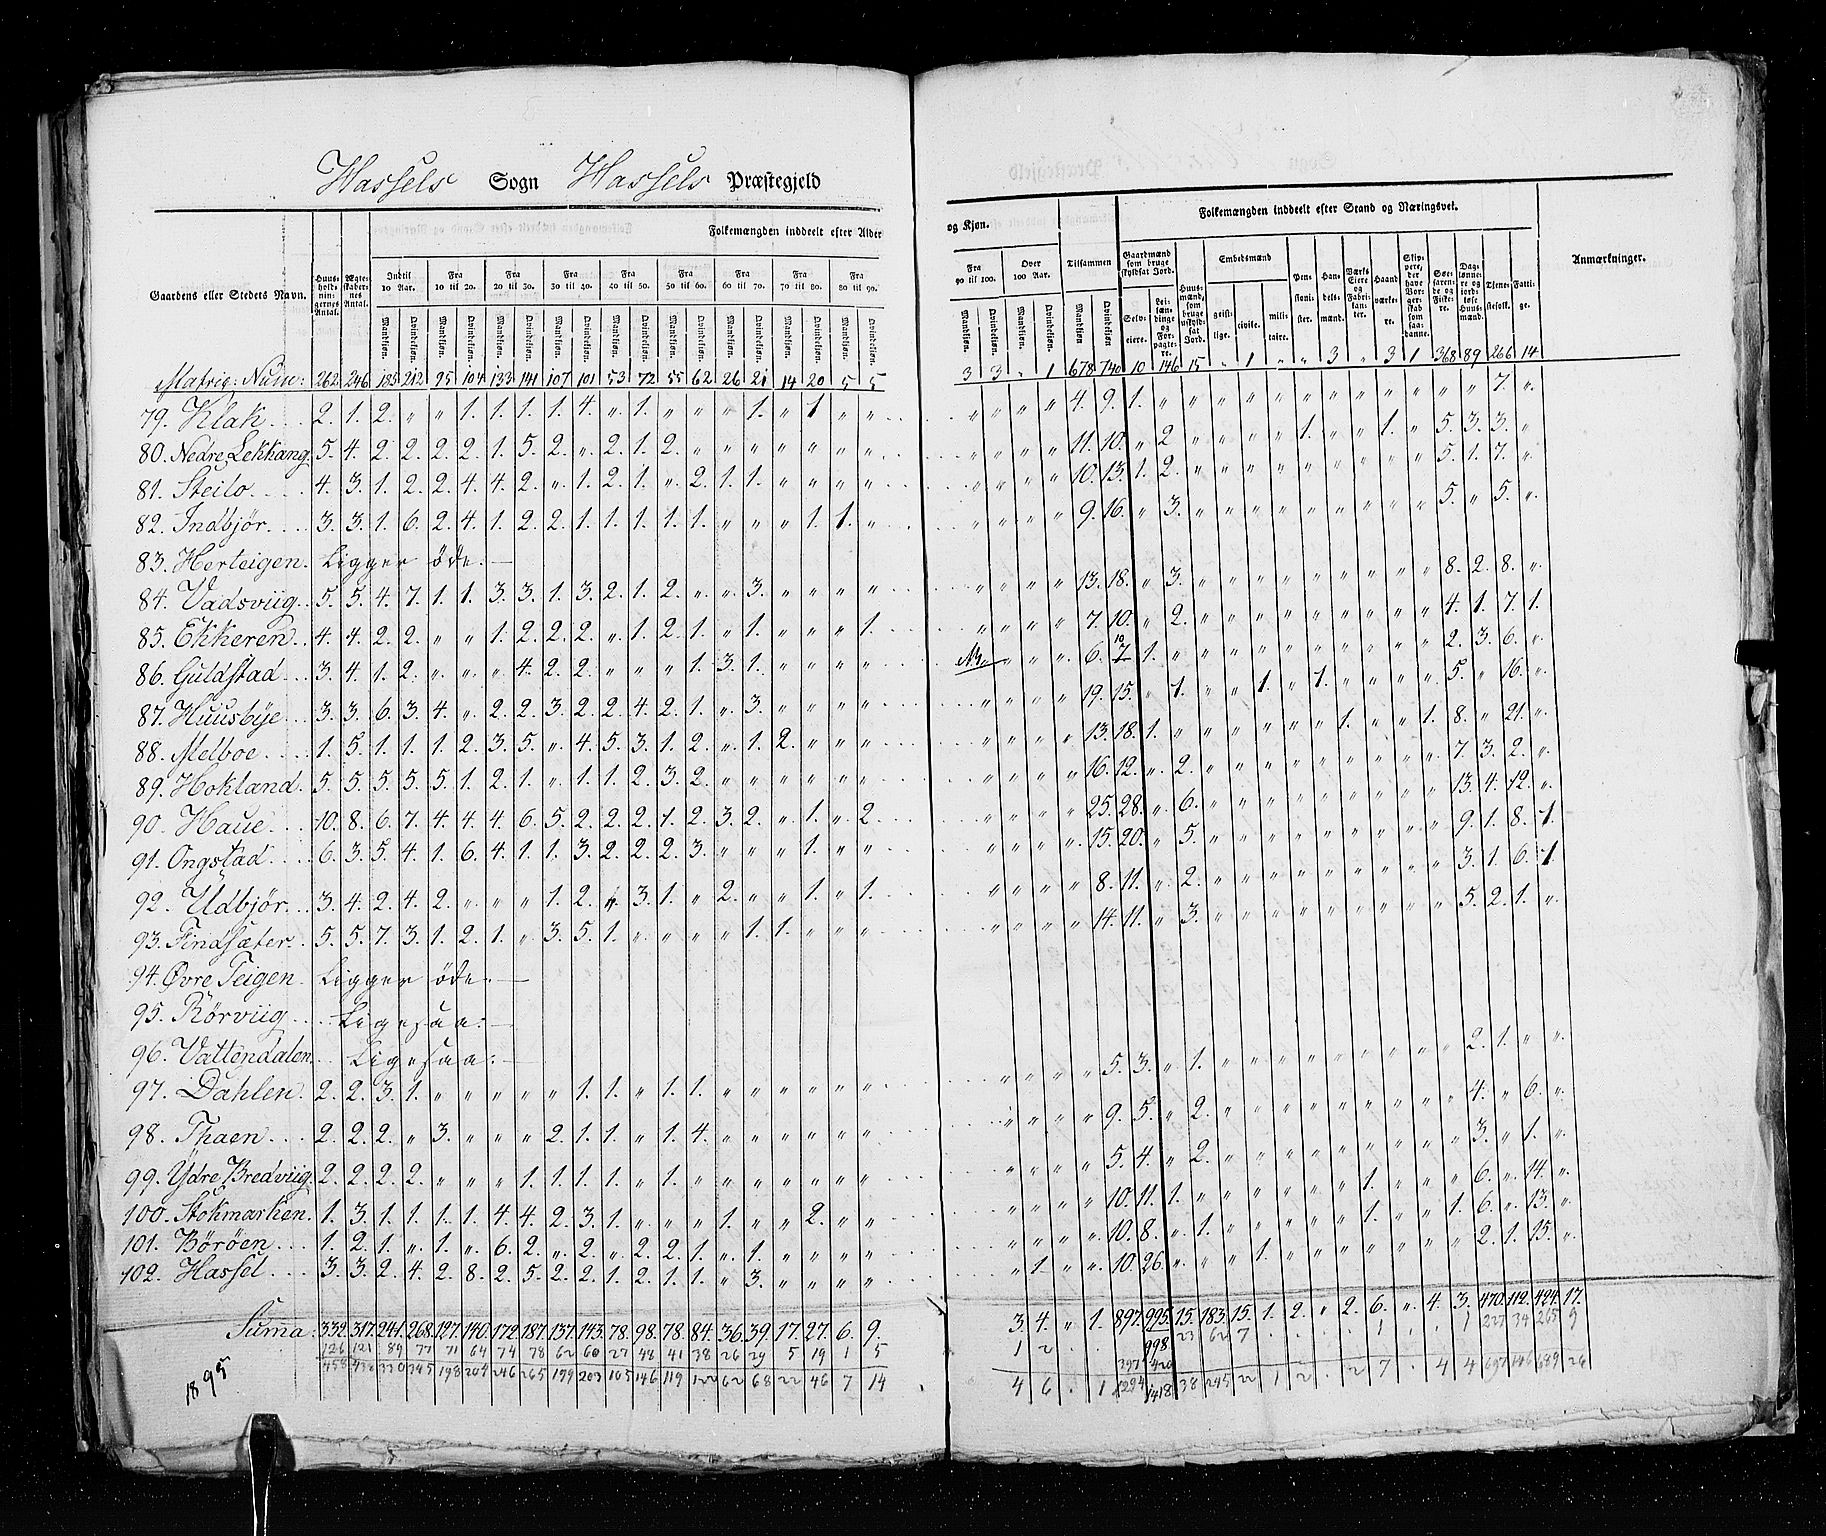 Hassels Sogn Hassels Præstegjeld
Gaardens eller Stedets Navn. Huusholdningernes Antal. Ægteskabernes Antal. Folkemængden inddeelt efter Alder
Indtil 10 Aar. Fra 10 til 20. Fra 20 til 30. Fra 30 til 40. Fra 40 til 50. Fra 50 til 60. Fra 60 til 70. Fra 70 til 80. Fra 80 til 90.
Mandkjøn. Qvindekjøn. Mandkjøn. Qvindekjøn. Mandkjøn. Qvindekjøn. Mandkjøn. Qvindekjøn. Mandkjøn. Qvindekjøn. Mandkjøn. Qvindekjøn. Mandkjøn. Qvindekjøn. Mandkjøn. Qvindekjøn. Mandkjøn. Qvindekjøn.
Matrig: Num: 262 246 185 212 95 104 133 141 107 101 53 72 55 62 26 21 14 20 5 5
79. Klak 2. 1. 2. " " 1. 1. 1. 1. 4. " 1. " " " 1. " 1 " "
80. Nedre Lekkang 5. 4. 2. 2. 2. 2. 1. 5. 2. " 2. 1. 2. " " " " " " "
81. Steilo 4. 3. 1. 2. 2. 4. 4. 2. " 1. 2. 1. " 2. 1. 1. " " " "
82. Indbjør 3. 3. 1. 6. 2. 4. 1. 2. 2. 1. 1. 1. 1. 1. " " " 1. 1. "
83. Herteigen. Ligger öde.
84. Vadsviig 5. 5. 4. 7. 1. 1. 3. 3. 1. 3. 2. 1. 2. " " 3. " " " "
85. Ekkeren 4. 4. 2. 2. " " 1. 2. 2. 2. " 1. 2. 1. " 1. " " " 1.
86. Guldstad 3. 4. 1. 2. " " " 4. 2. 2. " " " 1. 3. 1. " " " "
87. Huusbye 3. 3. 6. 3. 4. " 2. 2. 3. 2. 2. 4. 2. 1. " 3. " " " "
88. Melboe 1. 5. 1. 1. 1. 2. 3. 5. " 4. 5. 3. 1. 2. " 1. 2. " " "
89. Hokland 5. 5. 5. 5. 5. 1. 2. 1. " 1. 1. 2. 3. 2. " " " " " "
90. Haue 10. 8. 6. 7. 4. 4. 4. 6. 5. 2. 2. 2. 1. 2. 3. 2. " 1. " 2.
91. Ongstad 6. 3. 5. 4. 1. 6. 4. 1. 1. 3. 2. 2. 2. 3. " " " 1. " "
92. Udbjør 3. 4. 2. 4. 2. " " " 1. 2. " 3. 1. " 2. " " 1. " 1.
93. Findsæter 5. 5. 7. 3. 1. 2. 1. " 3. 5. 1. " " " " 1. 1. " " "
94. Øvre Teigen. Ligger öde.
95. Rörviig Ligesaa:
96. Vattendalen Ligesaa:
97. Dahlen. 2. 2. 3. 1. " " " " " 1. 1. " 1. 1. " " " " " "
98. Thaen 2. 2. 2. " 3. " " " 2. 1. 1. " 1. 4. " " " " " "
99. Ydre Bredviig 2. 2. 2. 2. " " " 1. 1. 1. 1. " 1. " " " " " " "
100. Stokmarken. 1. 3. 1. 1. 1. 1. 4. 4. 2. 3. 1. " " " 1. " " 2. " "
101. Börøen 1. 2. 1. " 1. " 6. 2. " 2. " 2. 2. 1. " 1. " " " "
102. Hassel 3. 3. 2. 4. 2. 8. 2. 5. 2. 2. 1. 2. 1. 1. " 3. " " " "
Suma: 332. 317. 241. 268. 127. 140. 172. 187. 137. 143. 78. 98. 78. 84. 36. 39. 17. 27. 6. 9.
126 121 89 77 71 64 74 78 62 60 27 48 41 38 26 29 5 19 1 5
458 438 330 345 198 204 246 265 199 203 105 146 119 122 62 68 22 46 7 14
1895
og Kjøn. Tilsammen Folkemængden inddeelt efter Stand og Næringsvei. Anmærkninger.
Fra 90 til 100. Over 100 Aar. Gaardmænd som bruge skyldsat Jord. Huusmænd, som bruge uskyldsat Jord. Embedsmænd Pensionister. Handelsmænd. Værks Eiere og Fabrikanter. Haandværkere. Skippere, der have Borgerskab som saadanne. Søefarende og Fiskere. Daglønnere og jordløse Huusmænd. Tjenestefolk. Fattige.
Mandkjøn. Qvindekjøn. Mandkjøn. Qvindekjøn. Mandkjøn. Qvindekjøn. Selveiere. Leilændinge og Forpagtere. geistlige. civile. militaire.
3 3 " 1 678 740 10 146 15 " 1 " " 3 " 3 1 368 89 266 14
" " " " 4. 9. 1. " " " " " " " " " " " " 7. "
" " " " 11. 10. " 2 " " " " 1. " " 1. " 5. 3. 3. "
" " " " 10. 13. 1. 2. " " " " " " " " " 5. 1. 7. "
" " " " 9. 16. " 3. " " " " " " " " " 5. " 5. "
" " " " 13. 18. " 3. " " " " " " " " " 8. 2. 8. "
" " " " 7. 10. " 2. " " " " " " " " " 4. 1. 7. 1.
" " " 6. 10 7 1. " " " " " " " " " " 2. 3. 6. "
" " " " 19. 15. " 1. " " 1. " 1. " " " " 5. " 16. "
" " " " 13. 18. 1. " " " " " " 1. " " 1. 8. " 21. "
" " " " 16. 12. " 2. " " " " " " " " " 7. 3. 2. "
" " " " 25. 28. " 6. " " " " " " " " " 13. 4. 12. "
" " " " 15. 20. " 5. " " " " " " " " " 9. 1. 8. 1.
" " " " 8. 11. " 2. " " " " " " " " " 3. 1. 6. 1
" " " " 14. 11. " 3. " " " " " " " " " 5. 2. 1. "
" " " " 5. 3. " 1. " " " " " " " " " 2. 1. " "
" " " " 9. 5. " 2. " " " " " " " " " 4. " 6. "
" " " " 5. 4. " 2. " " " " " " " " " 3. " 1. "
" " " " 10. 11. 1. " " " " " " 1. " " " 6. " 14. "
" " " " 10. 8. " 1. " " " " " 1. " " 1. 6. " 13. "
" 1. " " 10. 26. " " " 1. " " " " " " " 2. 1. 15. "
3. 4. " 1. 897. 995. 15. 183. 15. 1. 2. " 2. 6. " 4. 3. 470. 112. 424. 17.
1 2 998 23 62 7 1 1 227 34 265 9
397 420
4 6 1 1294 1418 38 245 22 1 2 2 7 4 4 697 146 689 26